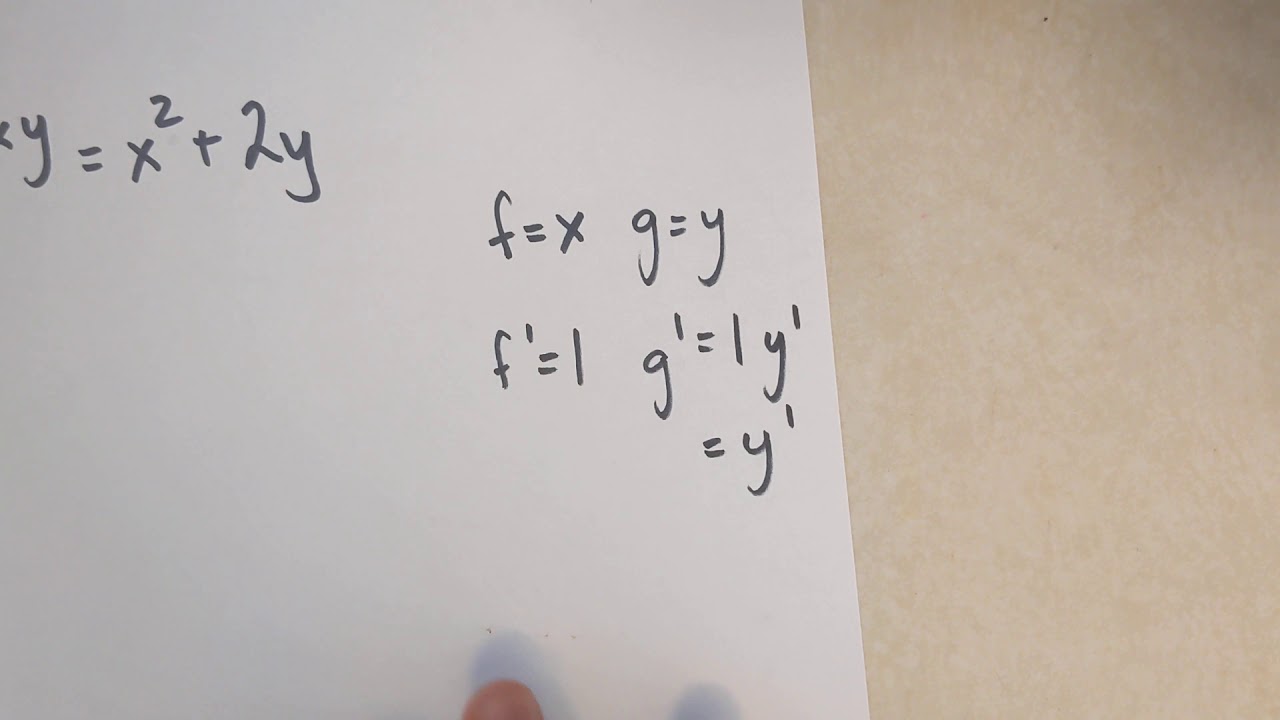 xy = x² + 2y
f = x g = y
f' = 1 g' = 1 y'
= y'